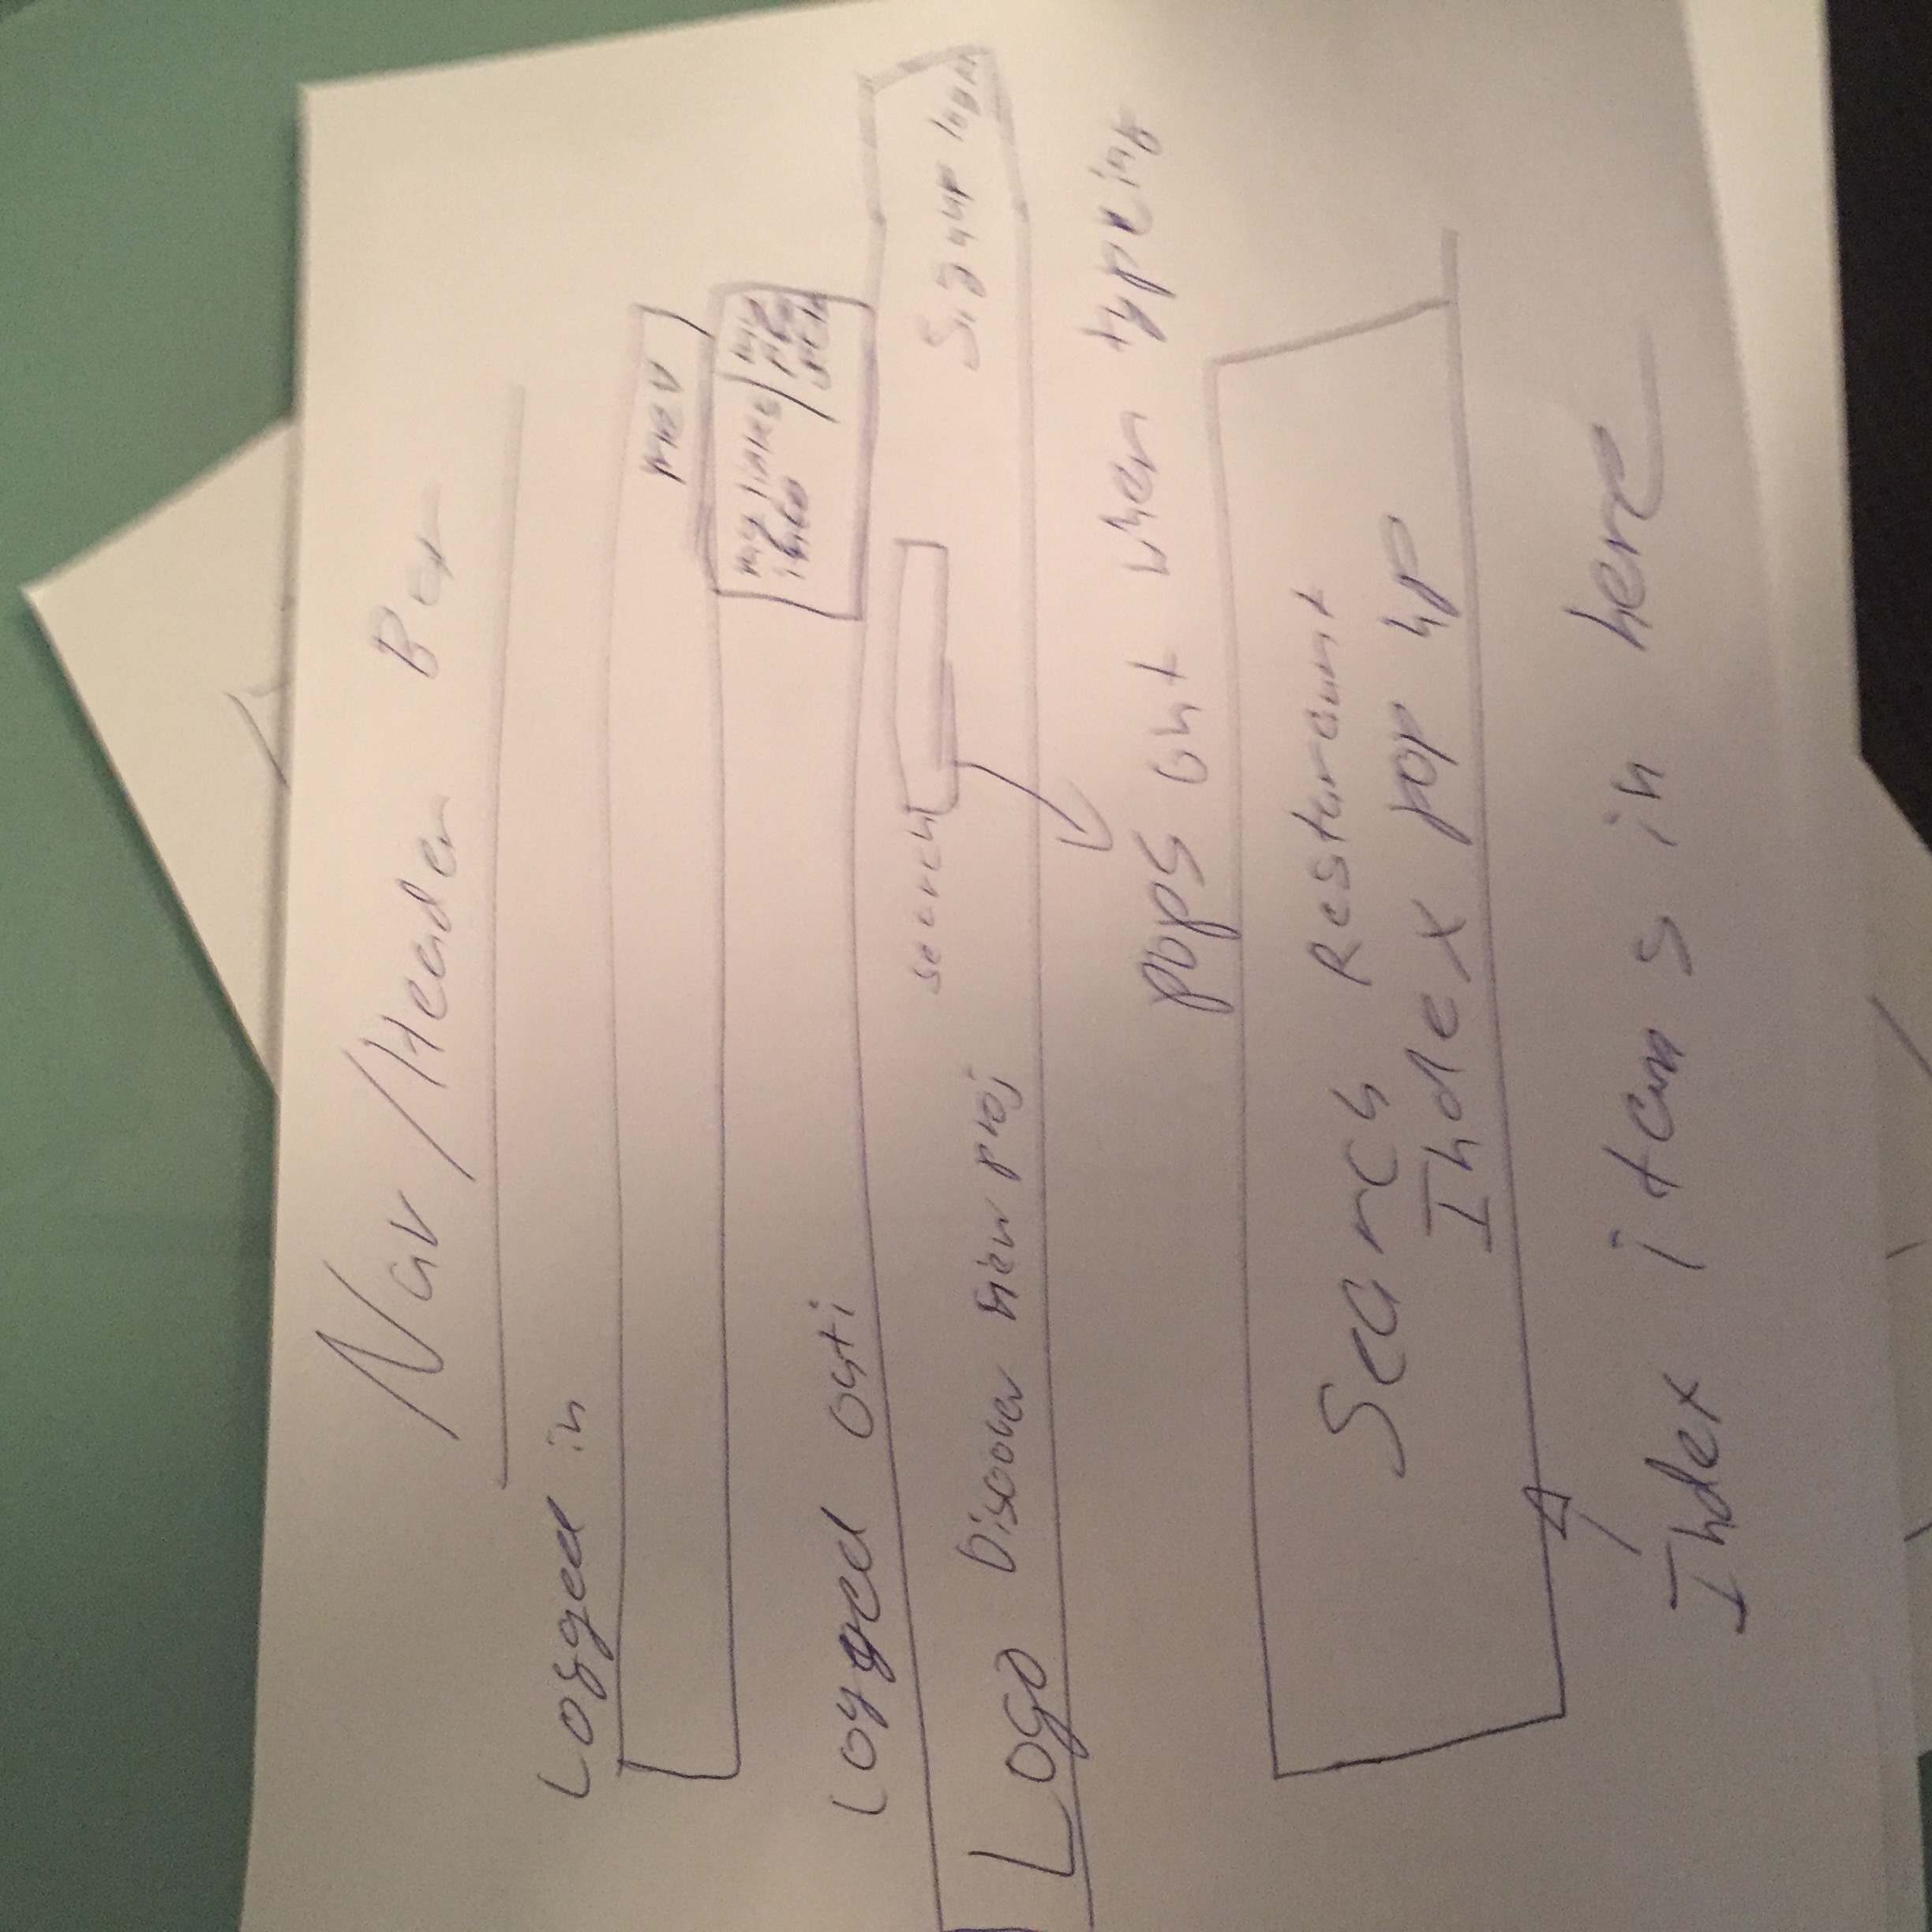 Nav/Header Bar
Logged in
me v
my links
info
my
Logged out:
search
Logo Discover view proj
Signup login
pops out when typeing
Search Resturaunt
Index pop up
Index items in here